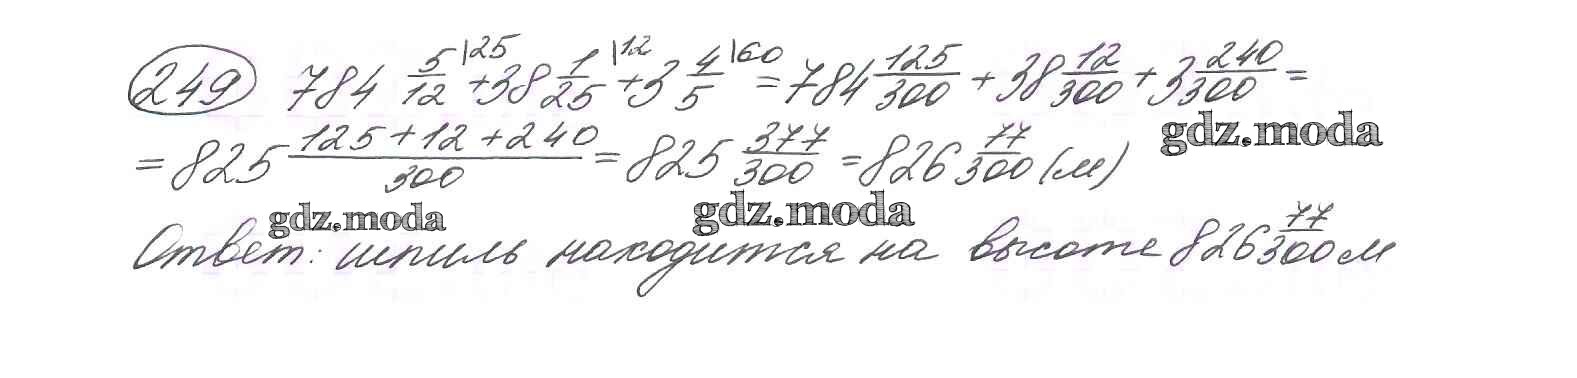 249 784 5/12 |25 + 38 1/25 |12 + 3 4/5 |60 = 784 125/300 + 38 12/300 + 3 240/300 =
= 825 (125+12+240)/300 = 825 377/300 = 826 77/300 (м)
gdz.moda
gdz.moda gdz.moda
Ответ: шпиль находится на высоте 826 77/300 м